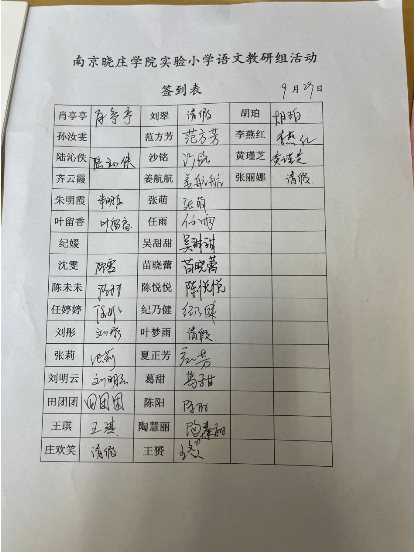 南京晓庄学院实验小学语文教研组活动
签到表 9月29日
肖亭亭 肖亭亭 刘翠 请假 胡珀 胡珀
孙汝雯 范方芳 范方芳 李燕红
陆沁佚 陆沁佚 沙铭 沙铭 黄瑾芝 黄瑾芝
齐云霞 姜航航 姜航航 张丽娜 请假
朱明霞 张萌 张萌
叶留香 叶留香 任雨 任雨
纪媛 吴甜甜
沈雯 苗晓蕾 苗晓蕾
陈未未 陈悦悦 陈悦悦
任婷婷 纪乃健
刘彤 刘彤 叶梦雨 请假
张莉 张莉 夏正芳
刘明云 刘明云 葛甜 葛甜
田团团 田团团 陈阳 陈阳
王琪 王琪 陶慧丽
庄欢笑 请假 王赟